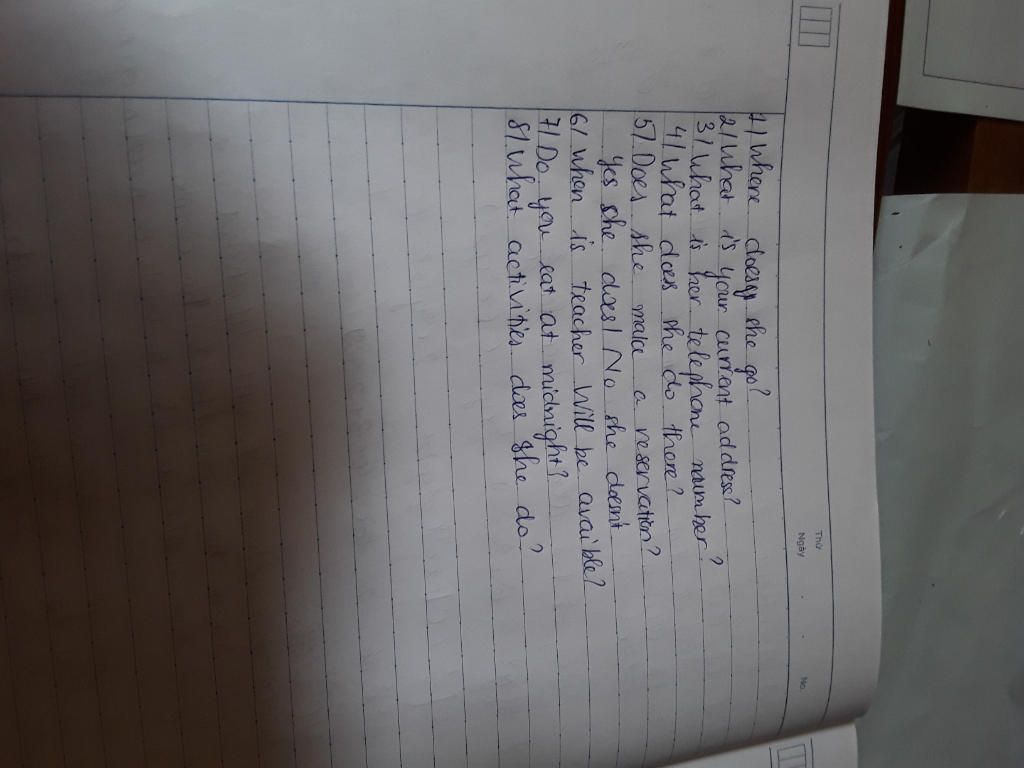 Thứ
Ngày
No.
1) Where does she go?
2) What is your current address?
3) What is her telephone number?
4) What does she do there?
5) Does she make a reservation?
Yes she does/ No she doesnt
6) When is teacher will be avaible?
7) Do you eat at midnight?
8) What activities does she do?